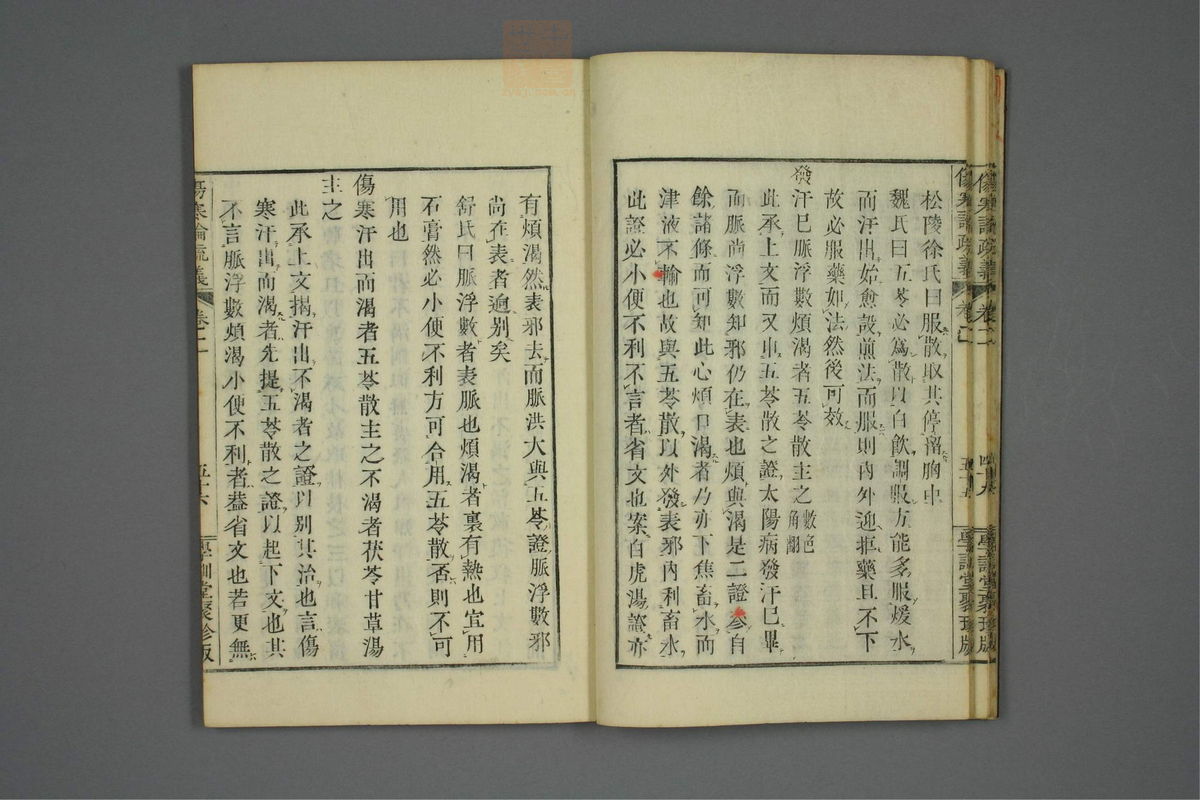 松陵徐氏曰服散取其停溜胸中
魏氏曰五苓必爲散以白飲調服方能多服煖水
而汗出始愈設煎法而服則內外迎拒藥且不下
故必服藥如法然後可效
發汗已脈浮數煩渴者五苓散主之
數色
角翻
此承上文而又申五苓散之證太陽病發汗已畢
而脈尚浮數知邪仍在表也煩與渴是二證參自
餘諸條而可知此心煩口渴者乃亦下焦畜水而
津液不輸也故與五苓散以外發表邪內利畜水
此證必小便不利不言者省文也案白虎湯證亦
有煩渴然表邪去而脈洪大與五苓證脈浮數邪
尚在表者逈別矣
舒氏曰脈浮數者表脈也煩渴者裏有熱也宜用
石膏然必小便不利方可合用五苓散否則不可
用也
傷寒汗出而渴者五苓散主之不渴者茯苓甘草湯
主之
此承上文揭汗出不渴者之證以別其治也言傷
寒汗出而渴者先提五苓散之證以起下文也其
不言脈浮數煩渴小便不利者葢省文也若更無
傷寒論疏義
卷二
五十六
學訓堂聚珍版